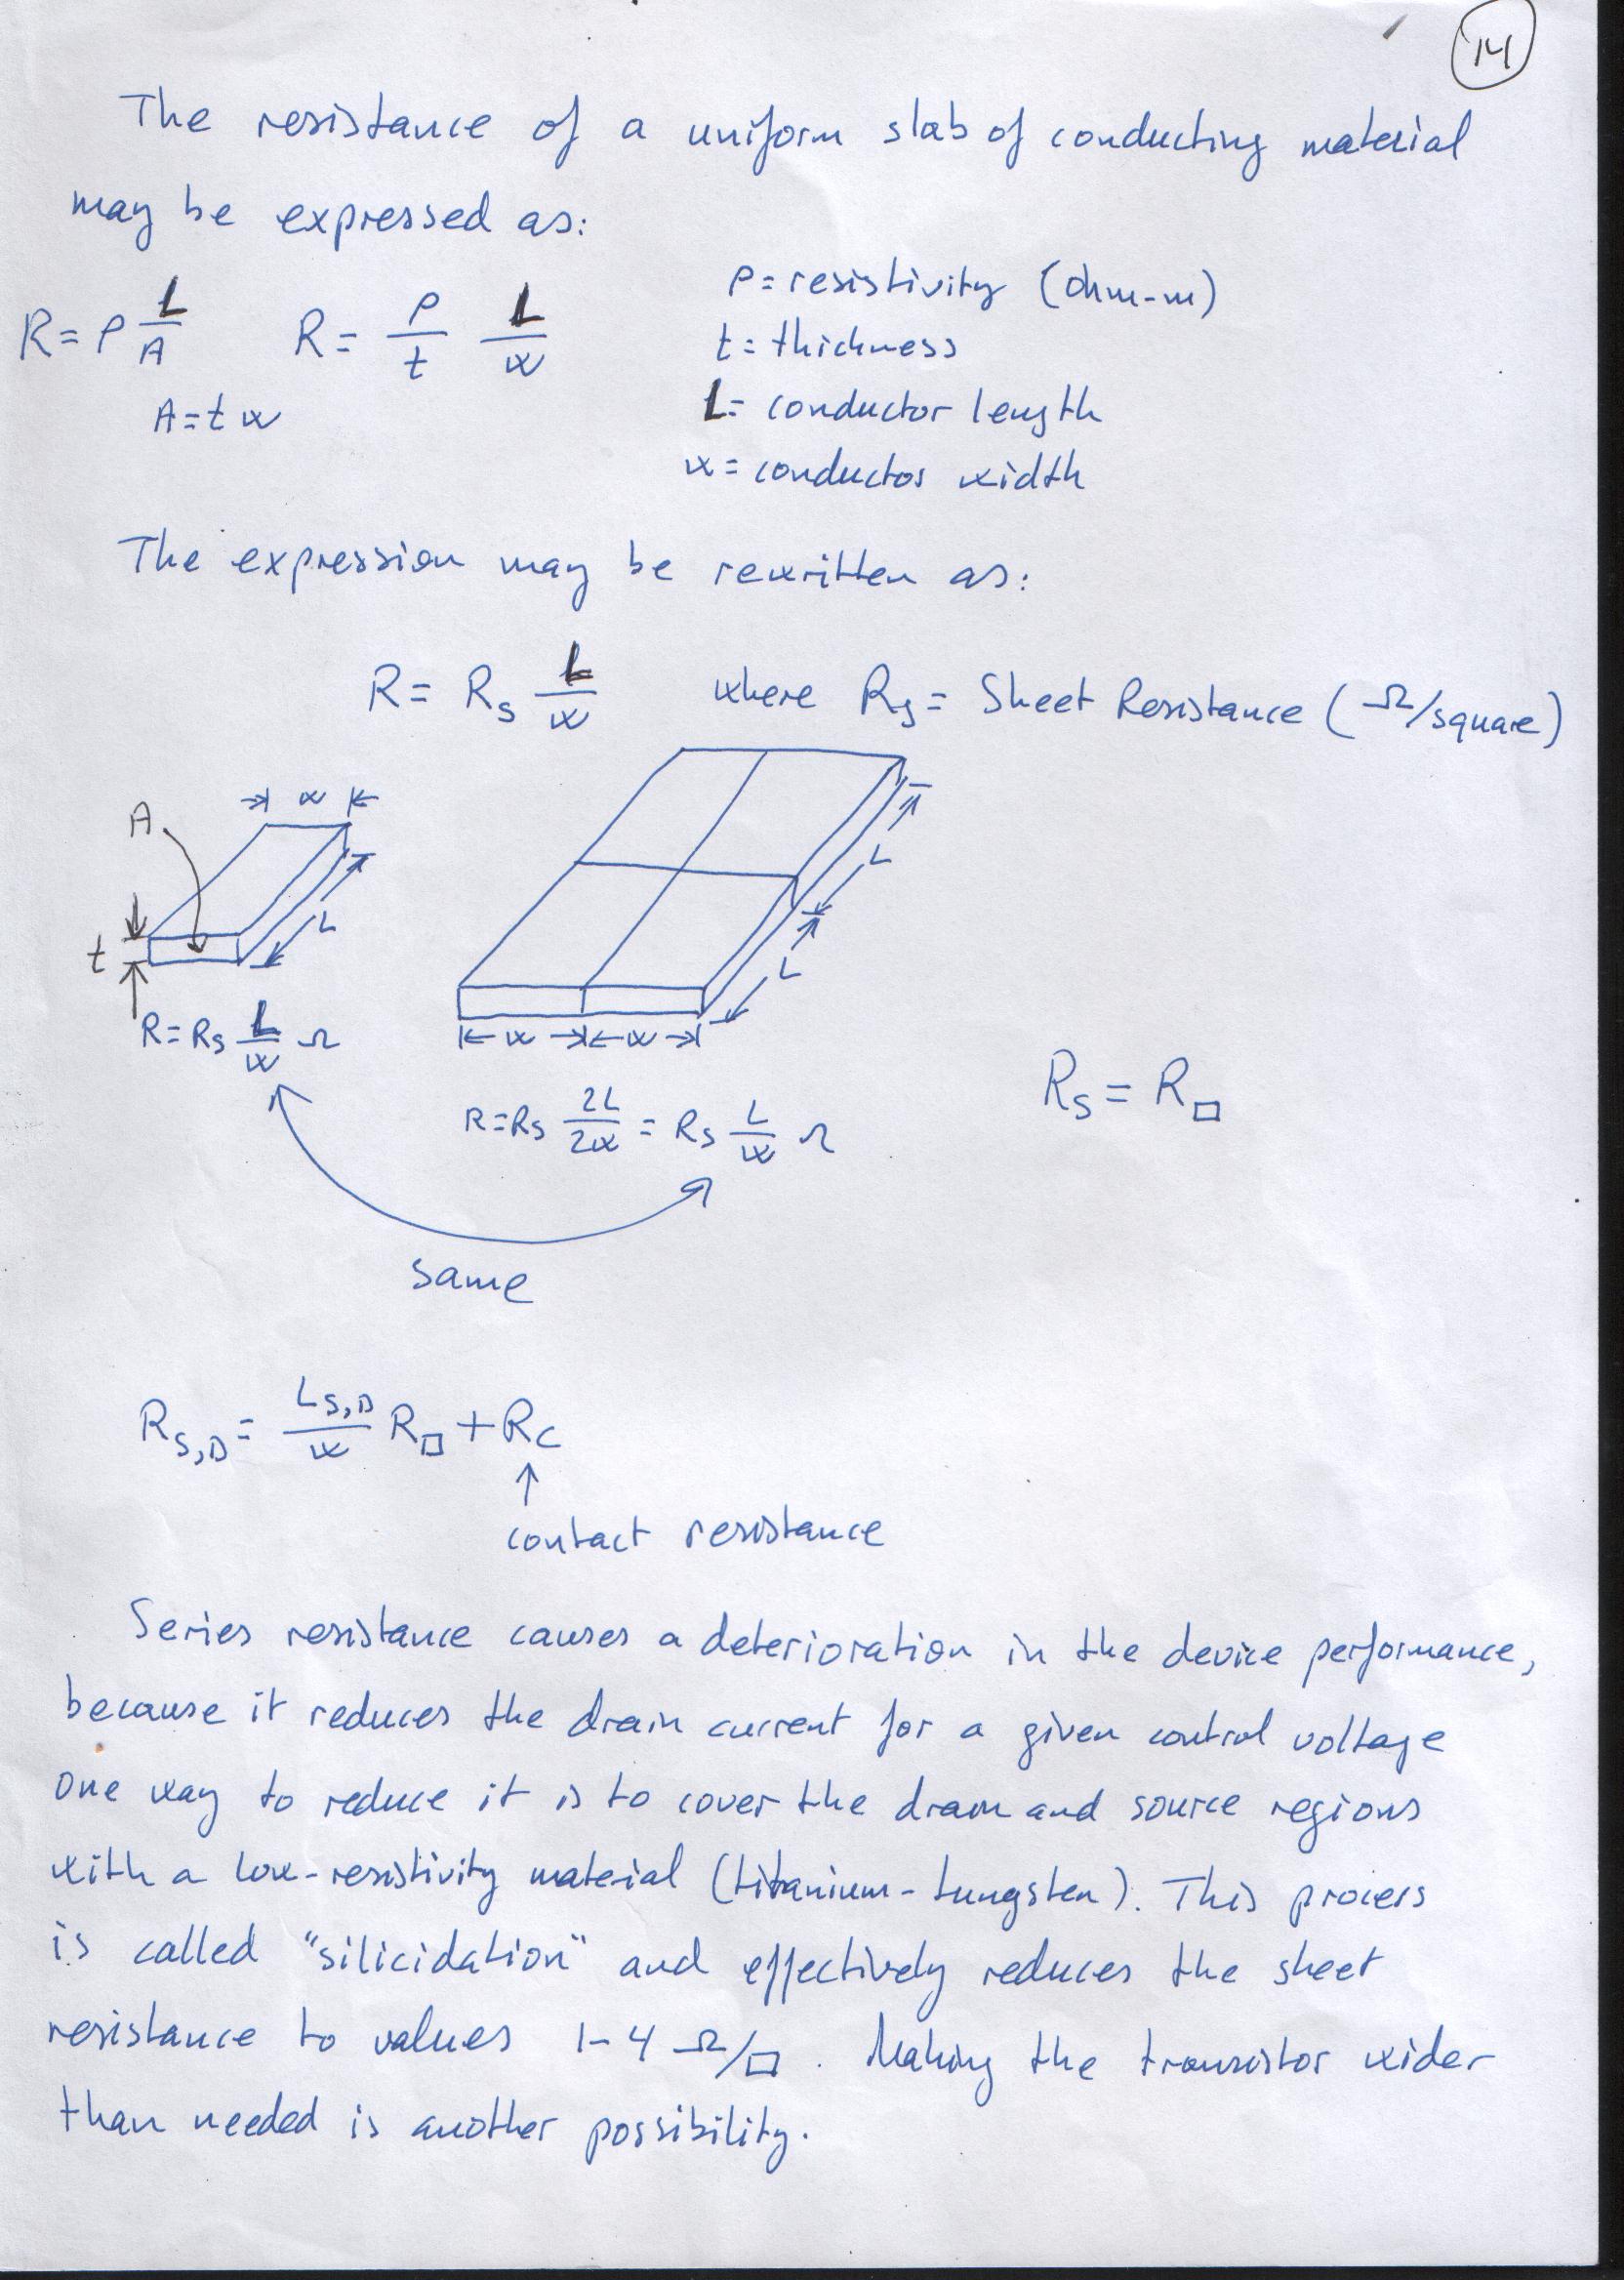 14
The resistance of a uniform slab of conducting material
may be expressed as:
R = ρ L/A    R = ρ/t L/w
A = t w
ρ = resistivity (ohm-m)
t = thickness
L = conductor length
w = conductos width
The expression may be rewritten as:
R = Rs L/w    where Rs = Sheet Resistance (Ω/square)
A
w
t
L
R = Rs L/w Ω
L
L
w w
R = Rs 2L/2w = Rs L/w Ω
Rs = R□
same
R_S,D = L_S,D/w R□ + Rc
contact resistance
Series resistance causes a deterioration in the device performance,
because it reduces the drain current for a given control voltage
one way to reduce it is to cover the drain and source regions
with a low-resistivity material (titanium-tungsten). This process
is called "silicidation" and effectively reduces the sheet
resistance to values 1-4 Ω/□. Making the transistor wider
than needed is another possibility.